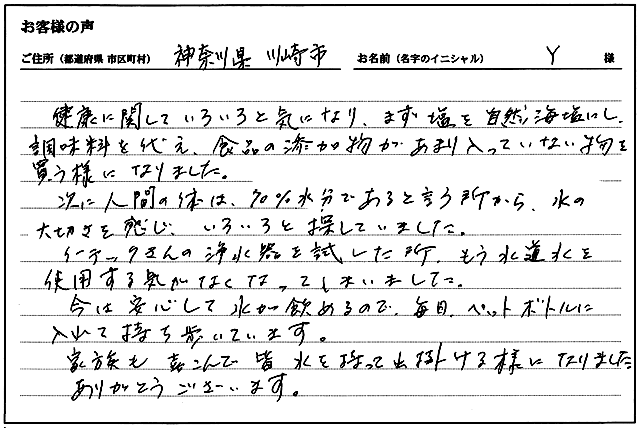 お客様の声
ご住所(都道府県 市区町村) 神奈川県 川崎市 お名前(名字のイニシャル) Y 様
健康に関していろいろと気になり、まず塩を自然海塩にし、
調味料を代え、食品の添加物があまり入っていない物を
買う様になりました。
次に人間の体は、70%水分であると言う所から、水の
大切さを感じ、いろいろと探していました。
イーテックさんの浄水器を試した所、もう水道水を
使用する気がなくなってしまいました。
今は安心して水が飲めるので、毎日、ペットボトルに
入れて持ち歩いています。
家族も喜こんで皆水を持って出掛ける様になりました
ありがとうございます。